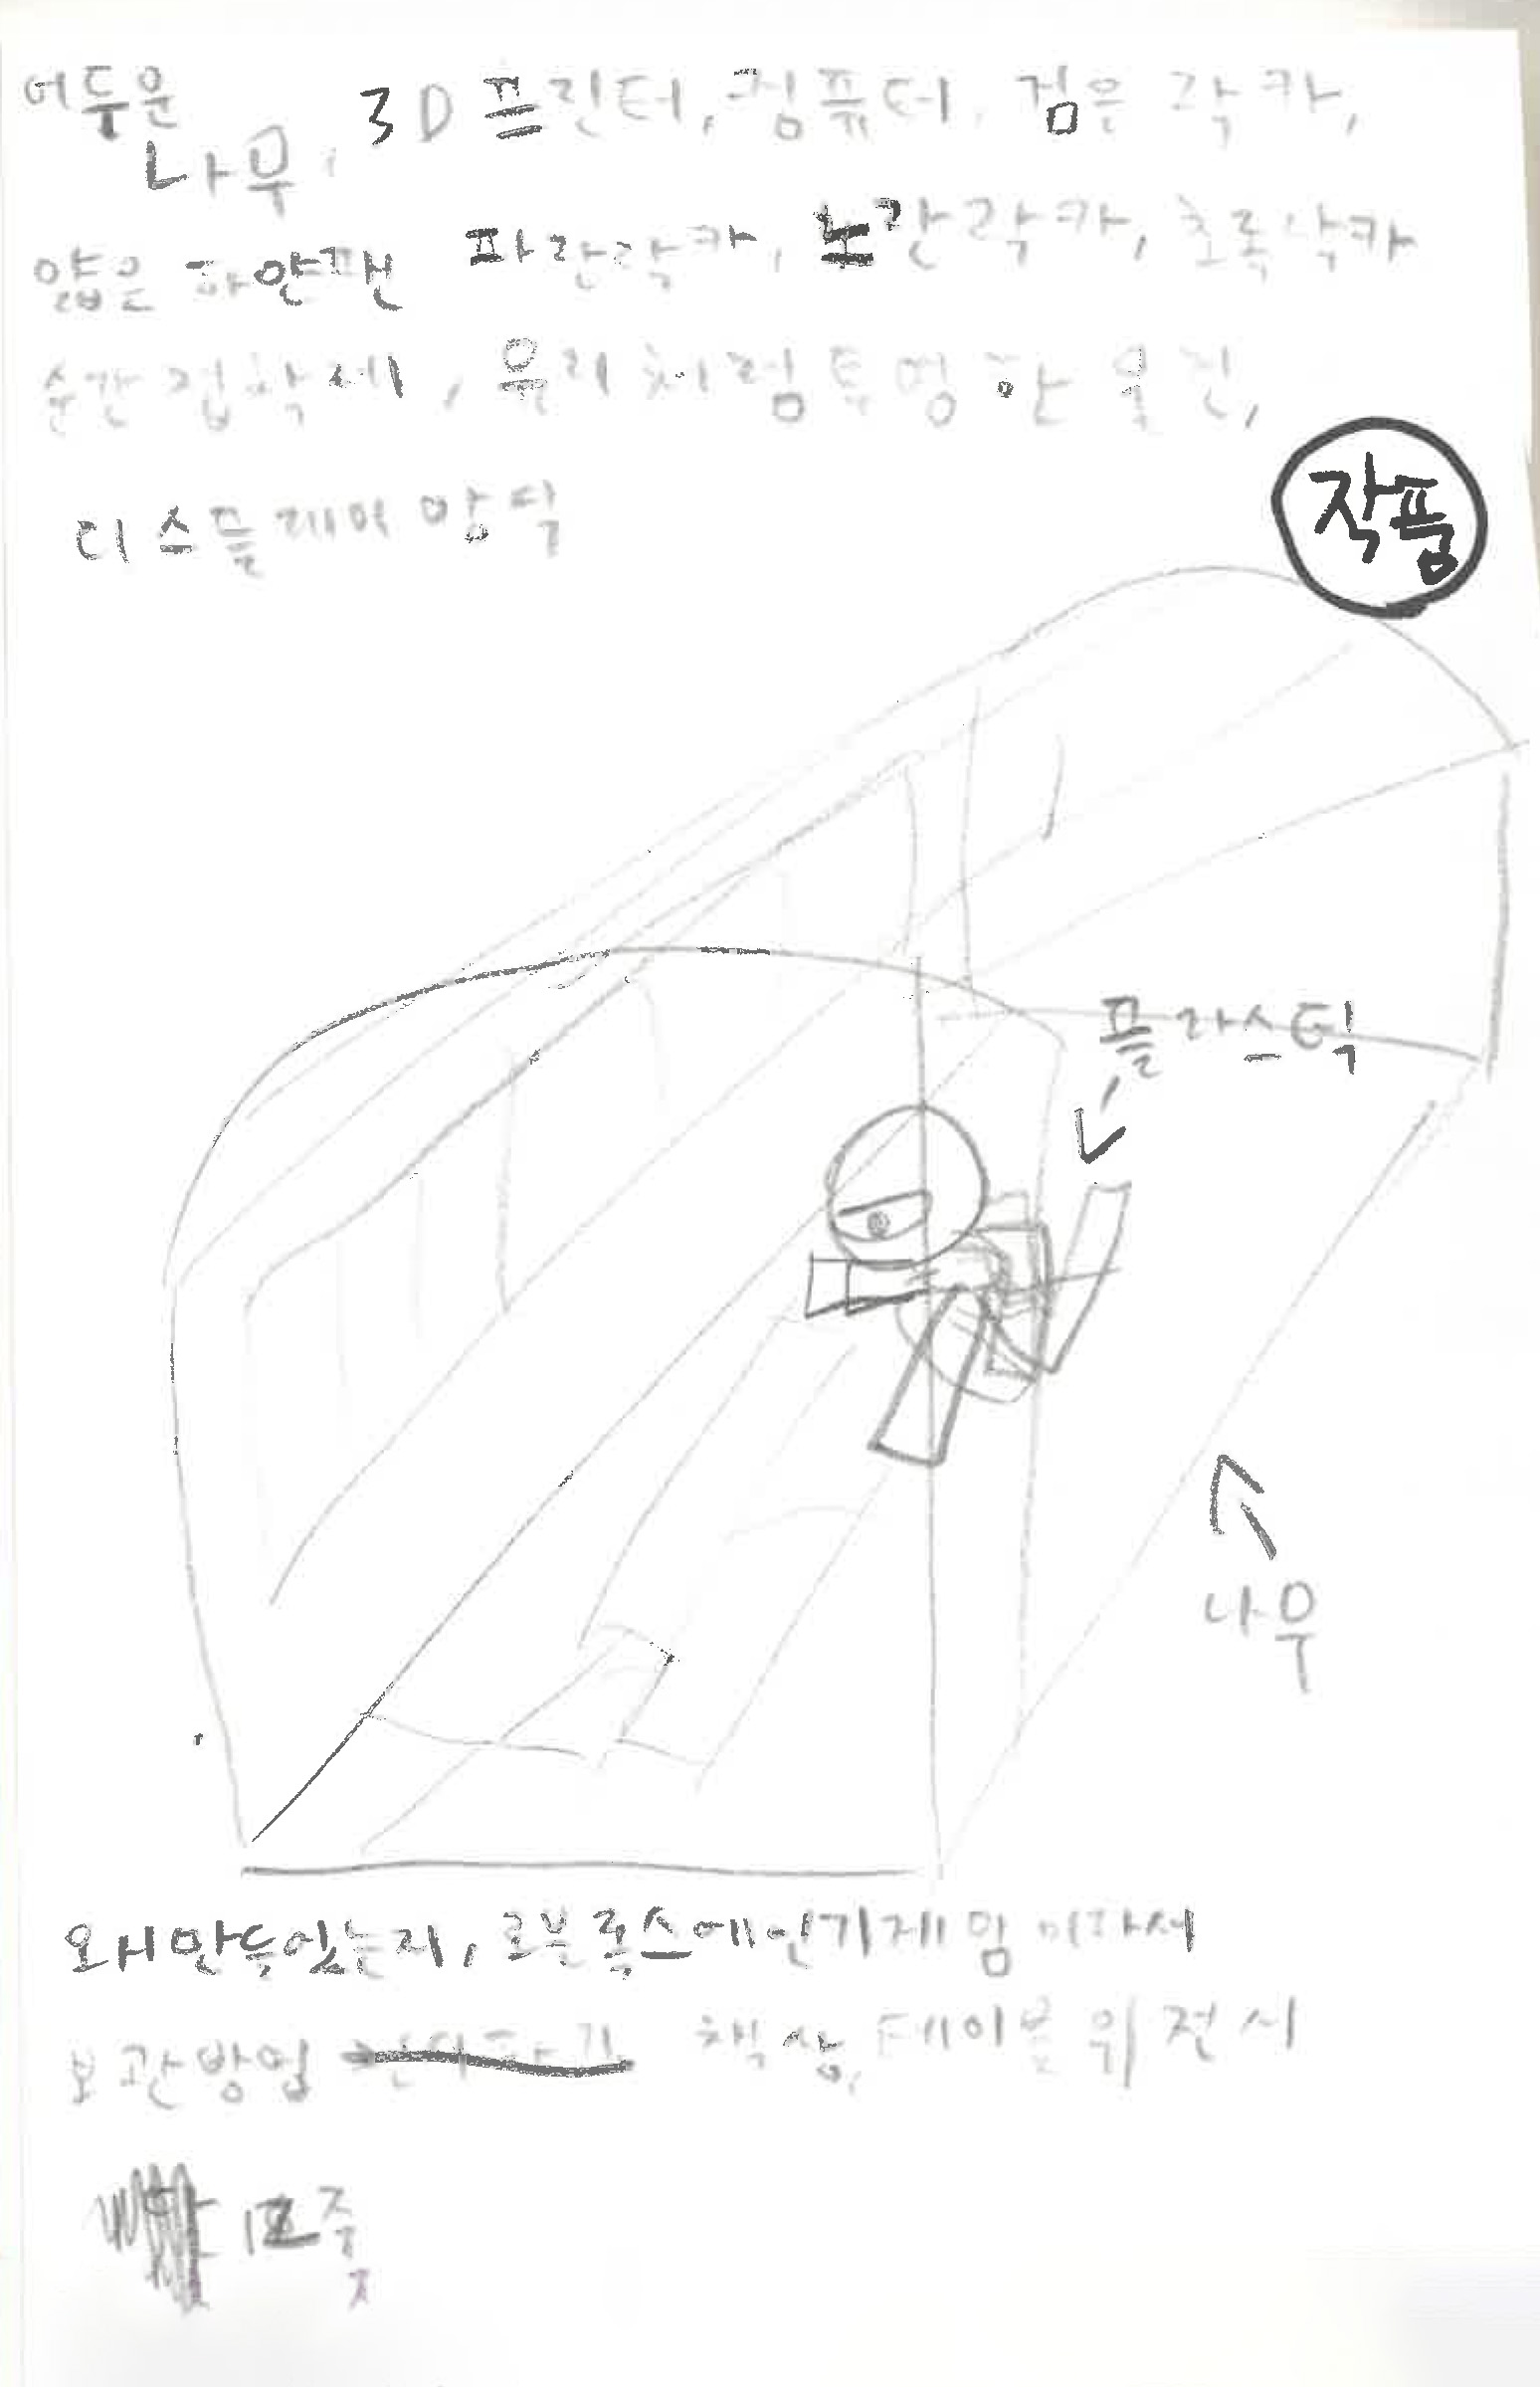 어두운
나무, 3D 프린터, 컴퓨터, 검은 락카,
얇은 하얀펜 파란락카, 노란락카, 초록락카
순간접착제, 유리처럼투명한 물건,
디스플레이
작품
플라스틱
나무
왜만들었는지, 로블록스에인기게임이라서
보관방법 책상, 테이블 위 전시
12주